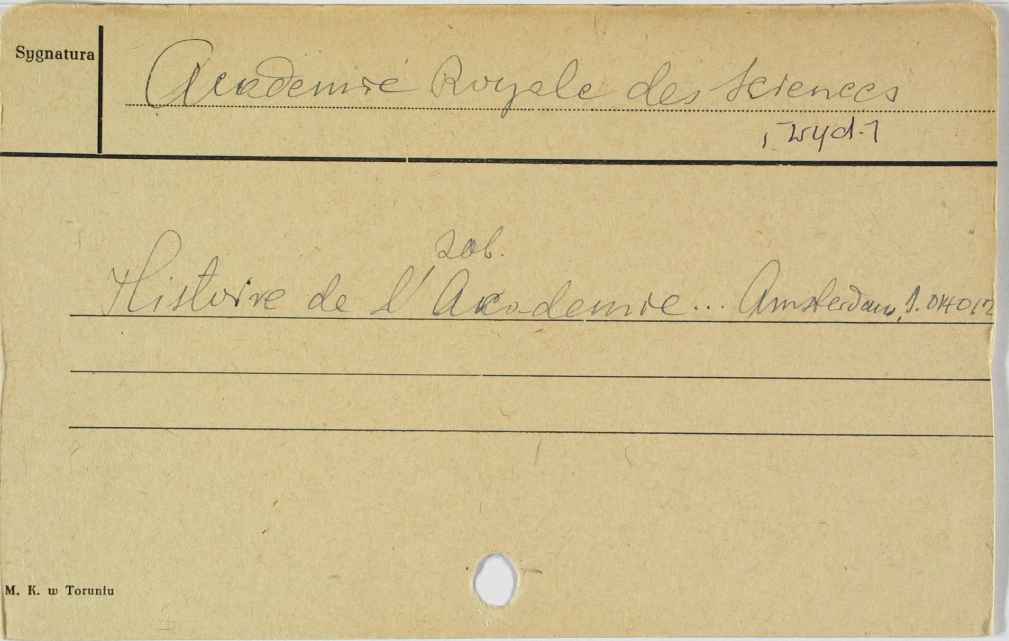 Sygnatura
Academie Royale des Sciences
, wyd. 1
zob.
Histoire de l'Academie... Amsterdam,
M. K. w Toruniu